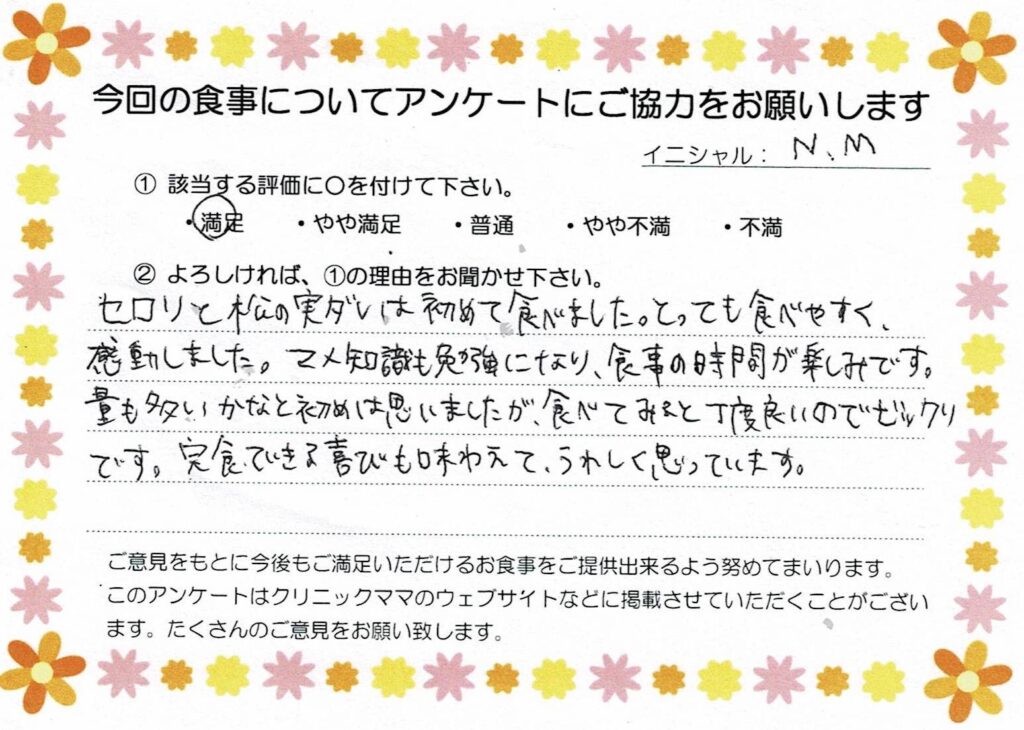 今回の食事についてアンケートにご協力をお願いします
イニシャル： N、M
① 該当する評価に〇を付けて下さい。
・満足 ・やや満足 ・普通 ・やや不満 ・不満
② よろしければ、①の理由をお聞かせ下さい。
セロリと松の実ダレは初めて食べました。とっても食べやすく、
感動しました。マメ知識も勉強になり、食事の時間が楽しみです。
量も多いかなと初めは思いましたが、食べてみると丁度良いのでビックリ
です。完食できる喜びも味わえて、うれしく思っています。
ご意見をもとに今後もご満足いただけるお食事をご提供出来るよう努めてまいります。
このアンケートはクリニックママのウェブサイトなどに掲載させていただくことがござい
ます。たくさんのご意見をお願い致します。